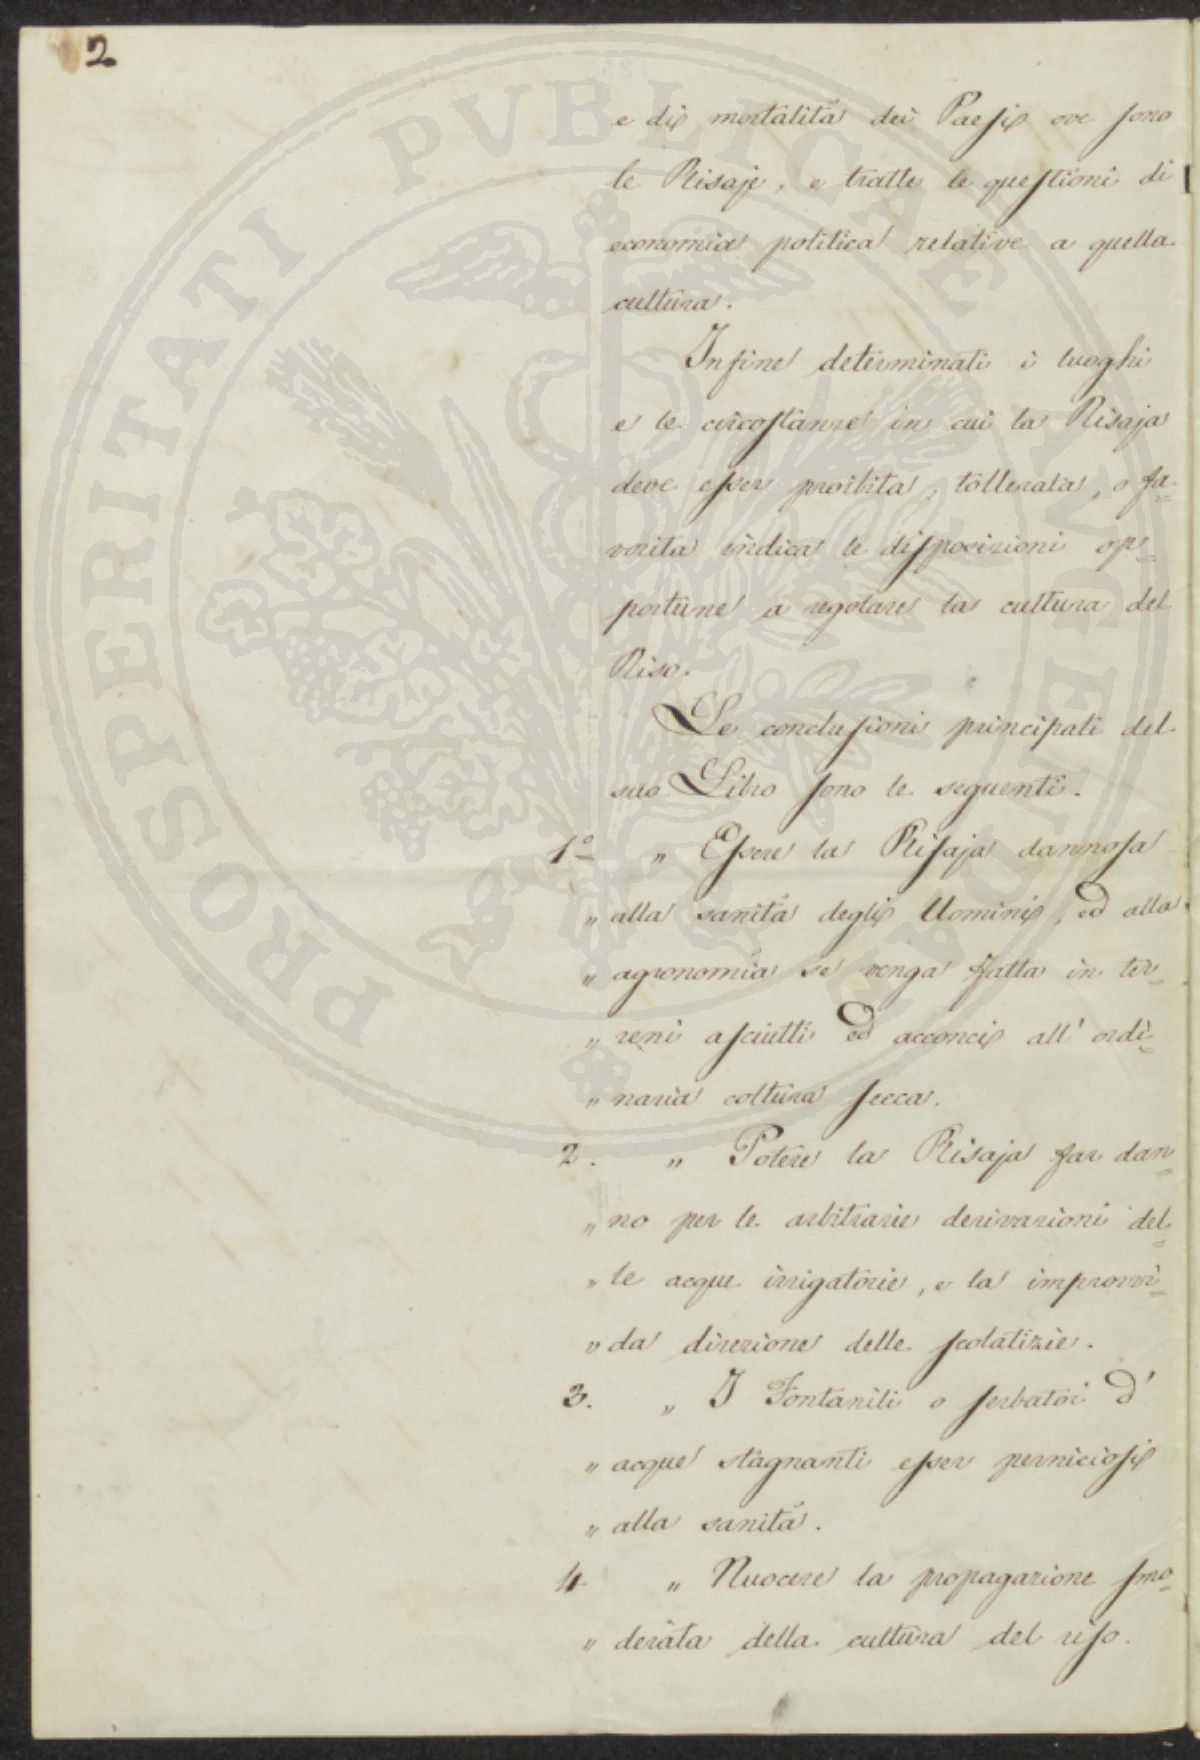 2
PROSPERITATI PVBLICAE AVGENDAE
e di mortalità dei Paesi ove sono
le Risaje, e tratta le questioni di
economia politica relative a quella
cultura.
Infine determinati i luoghi
e le circostanze in cui la Risaja
deve esser proibita, tollerata, o fa-
vorita indica le disposizioni op=
portune a regolare la cultura del
Riso.
Le conclusioni principali del
suo Libro sono le seguenti.
1° " Essere la Risaja dannosa
" alla sanità degli Uomini, ed alla
" agronomia se venga fatta in ter=
" reni asciutti ed acconci all' ordi=
" naria coltura secca.
2. " Potere la Risaja far dan=
" no per le arbitrarie derivazioni del=
" le acque irrigatorie, e la improvvi=
" da direzione delle scolatizie.
3. " I Fontanili o serbatoi d'
" acque stagnanti esser perniciosi
" alla sanità.
4 " Nuocere la propagazione smo=
" derata della cultura del riso.